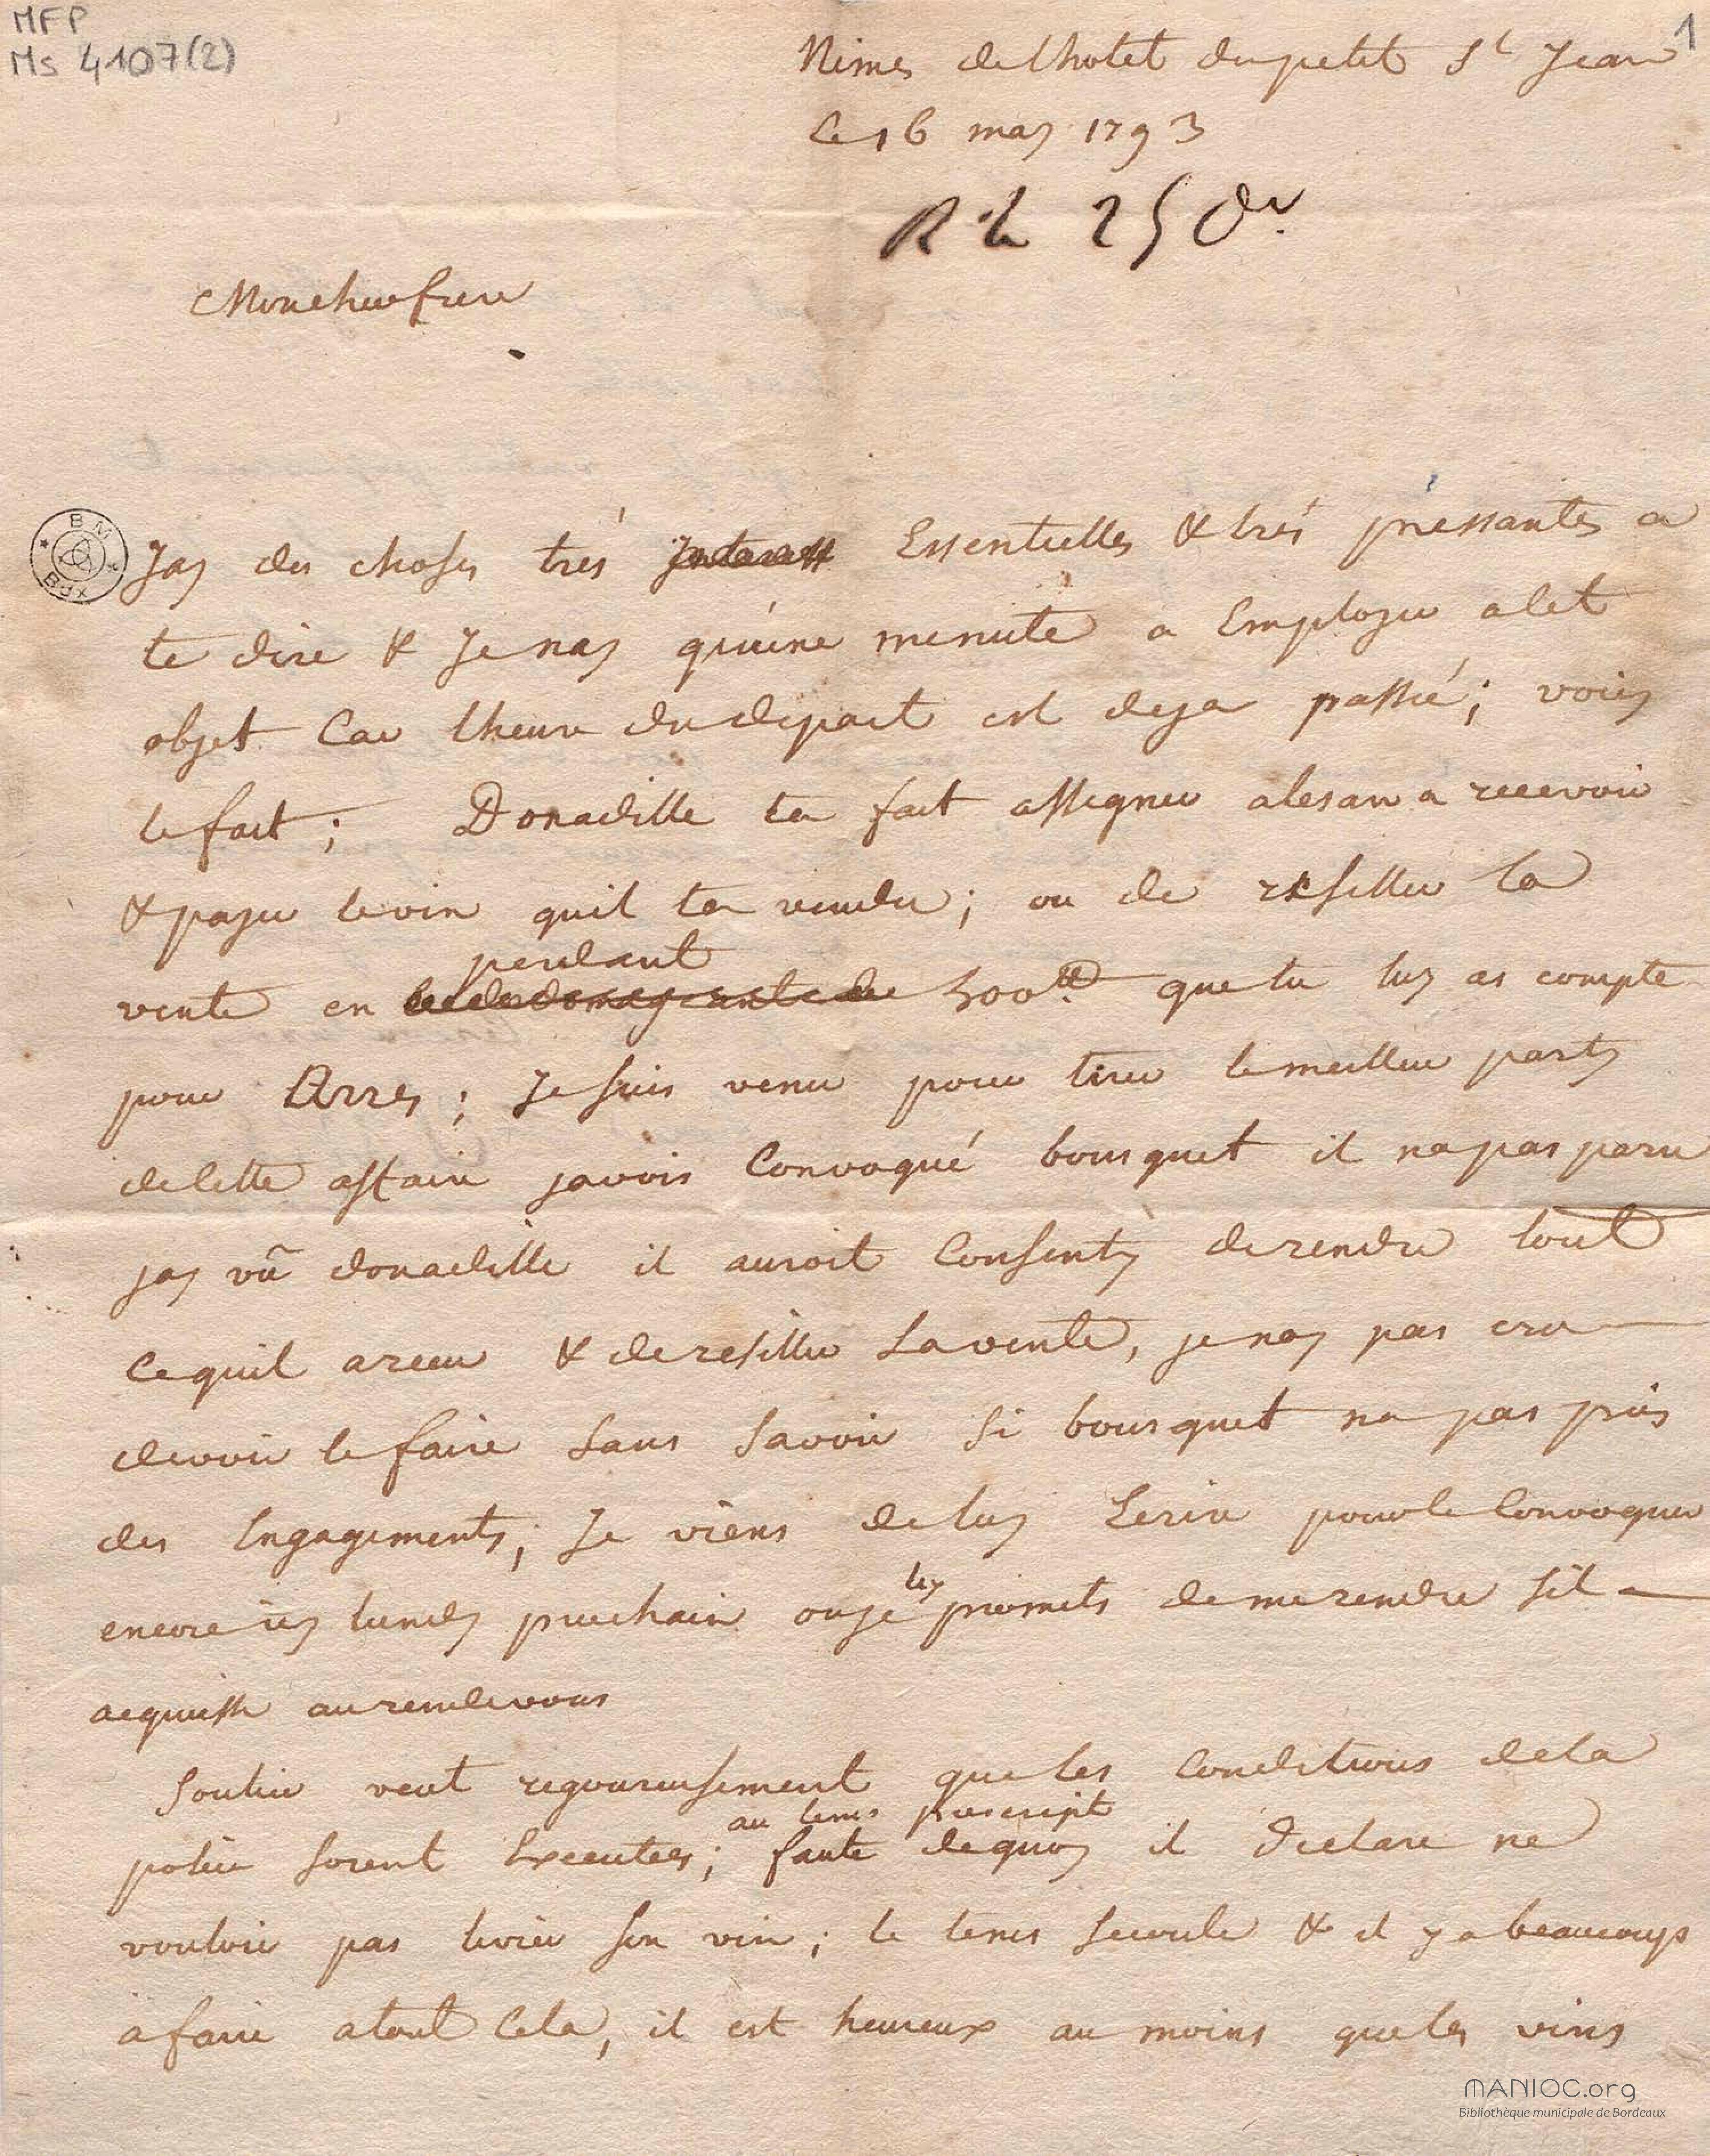 MFP
Ms 4107(2)
1
Nimes de lhotel du petit St Jean
le 16 may 1793
R. le 25 dt.
Moncher frere
BM
BPX
Jay des choses trés Essentielles & trés pressantes a
te dire & Je nay qu'une minute a Employer a cet
objet Car lheure du depart est deja passée; voicy
le fait; Donadille ta fait assigner a lesar a recevoir
& payer le vin quil ta vendu; ou de resillier la
vente en perdant 500tt. que tu luy as compté
pour Arres; Je suis venu pour tirer le meilleur party
de cette affaire javois Convoqué bousquet il na pas paru
jay vû donadille il auroit Consenty de rendre tout
Ce quil a recu & de resillier la vente, je nay pas cru
devoir le faire sans savoir si bousquet na pas pris
des Engagements; Je viens de luy Ecrire pour le Convoquer
encore icy lundy prochain ou je luy promets de me rendre sil
acquiesse au rendevous
Soulier veut rigoureusement que les Conditions de la
police soient Executées; au tems prescript faute dequoy il declare ne
vouloir pas livrer son vin; le tems secoule & il y a beaucoup
a faire a tout Cela, il est heureux au moins que les vins
MANIOC.org
Bibliothèque municipale de Bordeaux